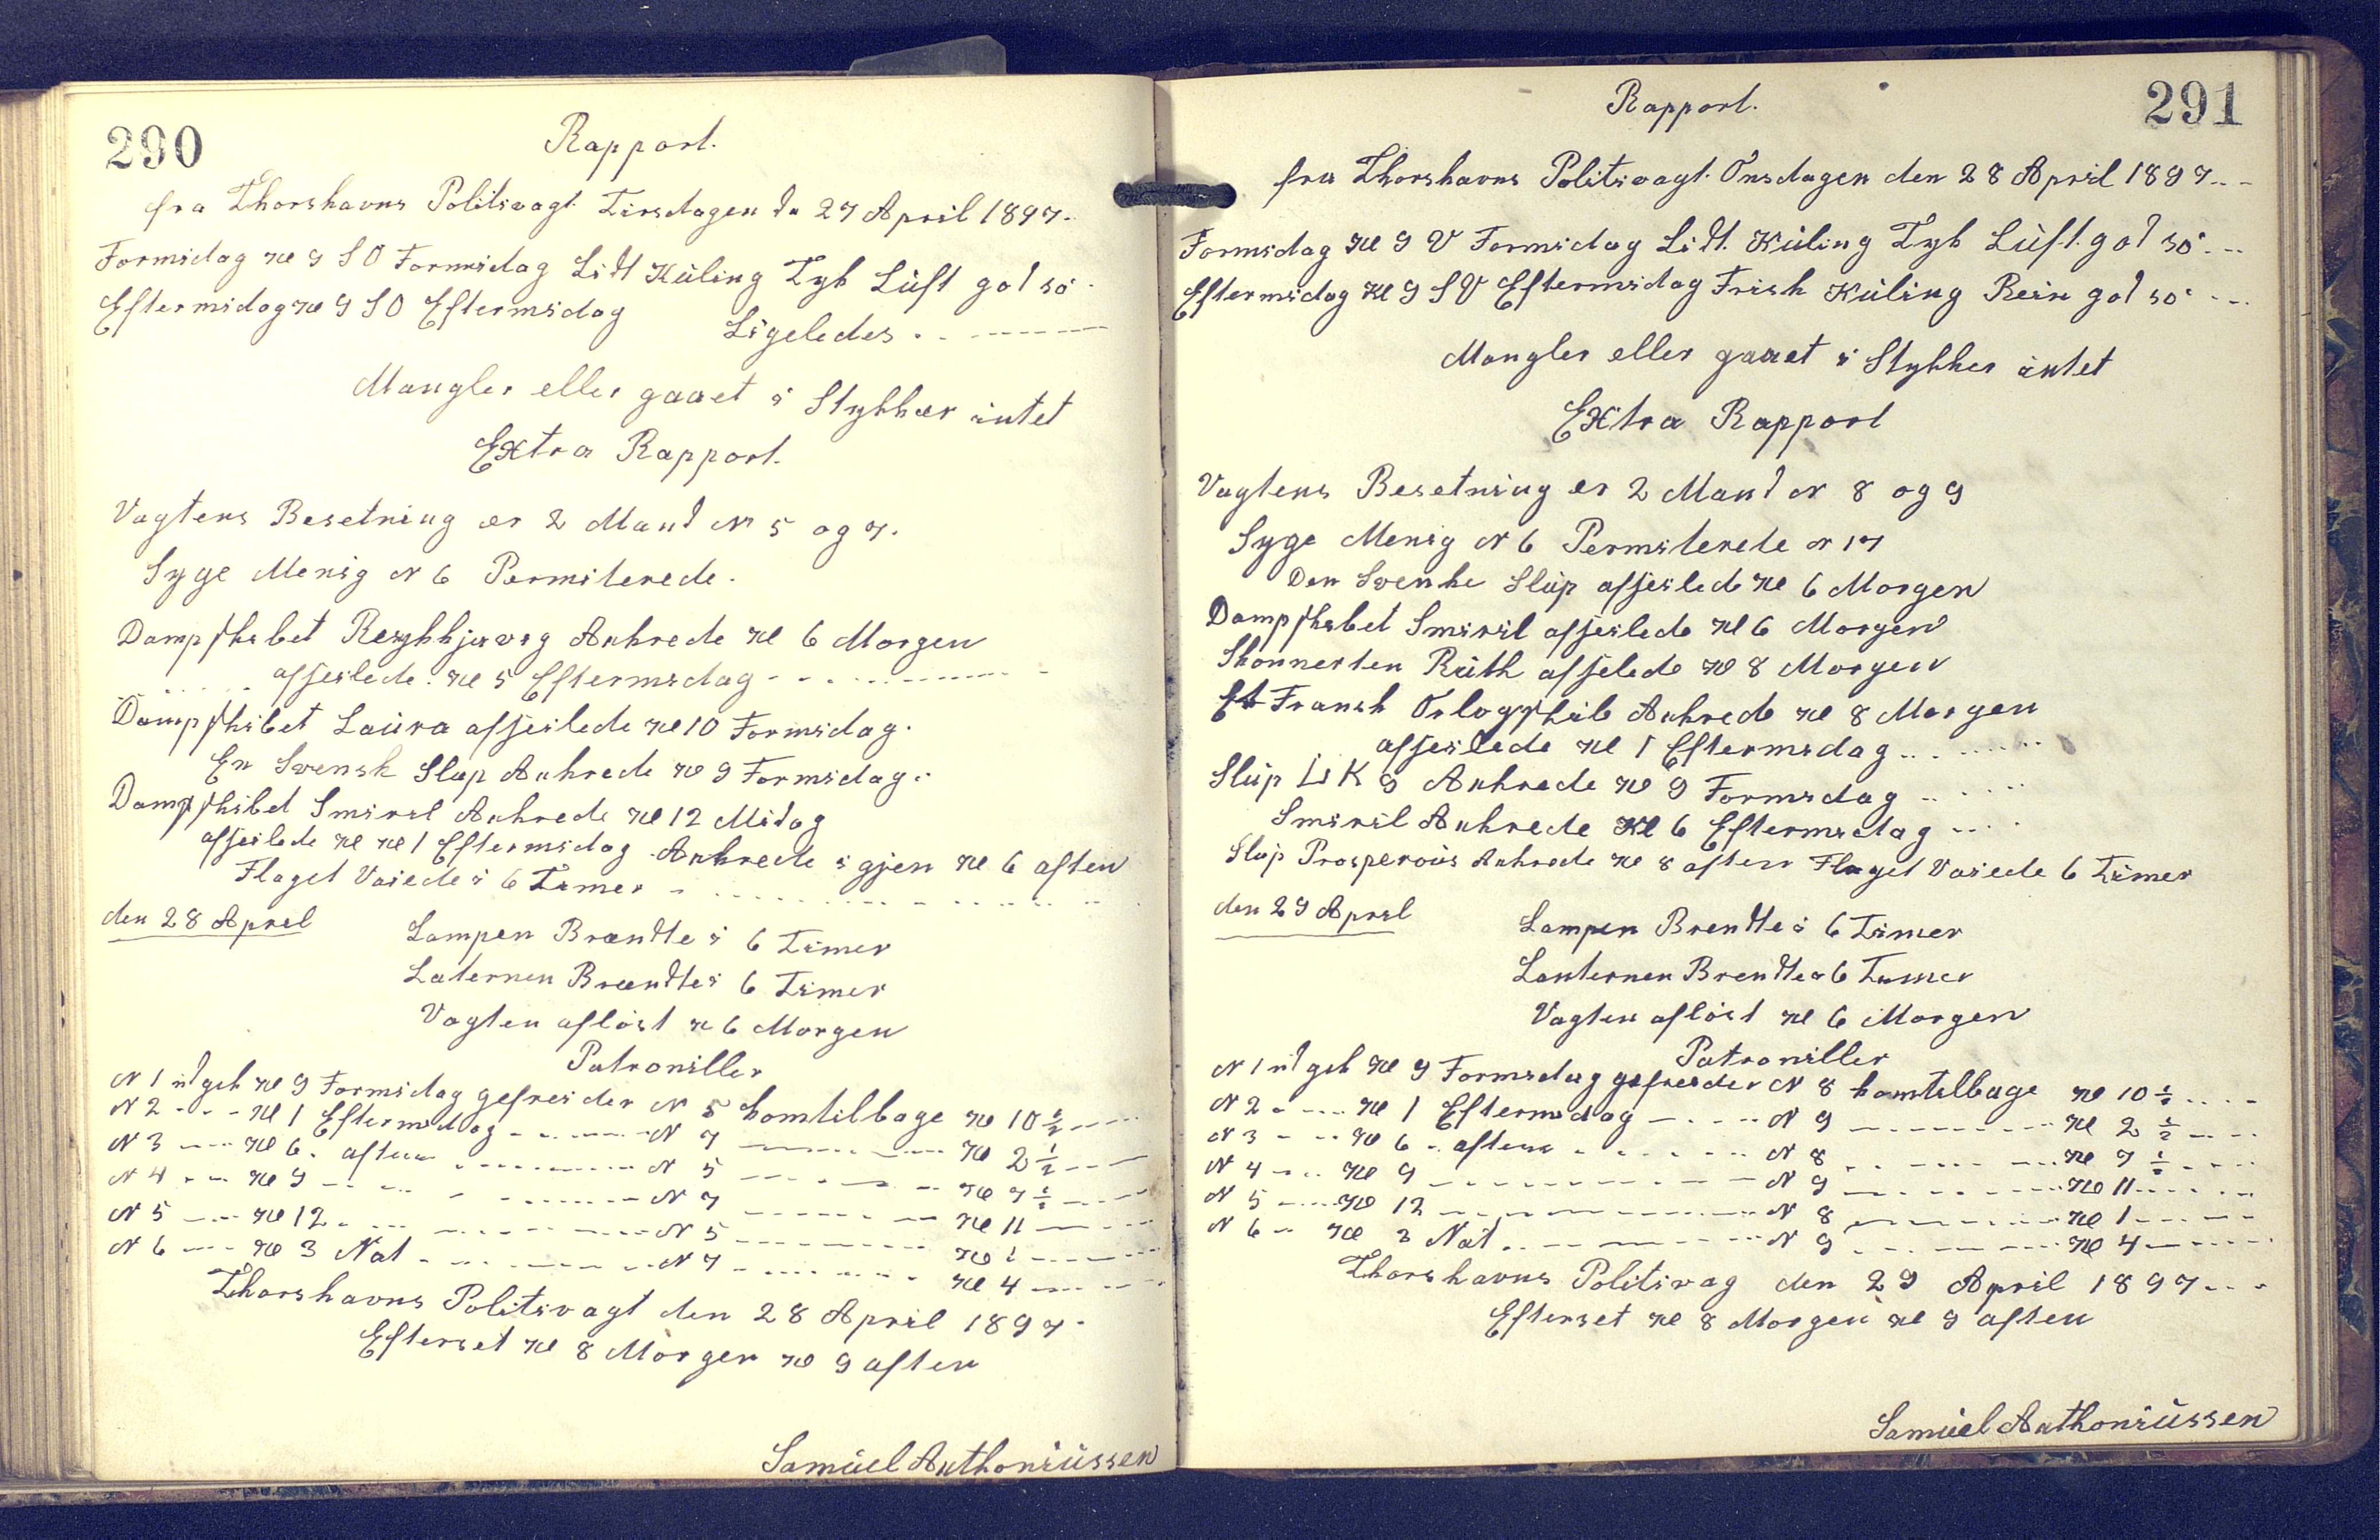 290
Rapport.
fra Thorshavns Politivagt Tirsdagen d. 27 April 1897.
Formidag Kl 9 SO Formidag Lidt Küling Tyk Lüft god sö.
Eftermidag Kl 9 SO Eftermidag Ligeledes
Mangler eller gaaet i Stykker intet
Extra Rapport.
Vagtens Besetning er 2 Mand N 5 og 7.
Syge Menig N 6 Permiterede.
Dampskibet Reykkjavig Ankrede Kl 6 Morgen
afseilede Kl 5 Eftermidag
Dampskibet Laüra afseilede Kl 10 Formidag.
En Svensk Slup Ankrede Kl 9 Formidag.
Dampskibet Smiril Ankrede Kl 12 Midag
afseilede Kl Kl 1 Eftermidag Ankrede i gjen Kl 6 aften
Flaget Vaiede i 6 Timer
den 28 April
Lampen Brændte i 6 Timer
Laternen Brændte i 6 Timer
Vagten aflöst K 6 Morgen
Patroniller
N 1 udgek Kl 9 Formidag gefreider N 5 komtilbage Kl 10 1/2
N 2 - - - Kl 1 Eftermidag - - - N 7 - - - Kl 2 1/2
N 3 - - - Kl 6. aften - - - N 5 - - - Kl 7 1/2
N 4 - - - Kl 9 - - - N 7 - - - Kl 11
N 5 - - - Kl 12. - - - N 5 - - - Kl 1
N 6 - - - Kl 3 Nat - - - N 7 - - - Kl 4
Thorshavns Politivagt den 28 April 1897.
Efterset Kl 8 Morgen Kl 9 aften
Samüel Anthoniüssen
291
Rapport.
fra Thorshavns Politivagt. Onsdagen den 28 April 1897
Formidag Kl 9 V Formidag Lidt. Küling Tyk Lüft. god sö
Eftermidag Kl 9 SV Eftermidag Frisk Küling Rein god sö
Mangler eller gaaet i Stykker intet
Extra Rapport
Vagtens Besetning er 2 Mand N 8 og 9
Syge Menig N 6 Permiterede N 17
Den Svenke Slüp afseilede Kl 6 Morgen
Dampskibet Smiril afseilede Kl 6 Morgen
Skonnerten Rüth afselede Kl 8 Morgen
Et Fransk Orlogskib Ankrede Kl 8 Morgen
afseilede Kl 1 Eftermidag
Slüp LK 9 Ankrede Kl 9 Formidag
Smiril Ankrede Kl 6 Eftermidag
Slup Prosperoüs Ankrede Kl 8 aften Flaget Vaiede 6 Timer
den 29 April
Lampen Brendte i 6 Timer
Lanternen Brendte i 6 Timer
Vagten aflöst Kl 6 Morgen
Patroniller
N 1 udgek Kl 9 Formidag gefreider N 8 komtilbage Kl 10 1/2
N 2 - - - Kl 1 Eftermidag - - - N 9 - - - Kl 2 1/2
N 3 - - - Kl 6 - aften - - - N 8 - - - Kl 7 1/2
N 4 - - - Kl 9 - - - N 9 - - - Kl 11
N 5 - - - Kl 12 - - - N 8 - - - Kl 1
N 6 - Kl 3 Nat - - - N 9 - - - Kl 4
Thorshavns Politivag den 29 April 1897
Efterset Kl 8 Morgen Kl 9 aften
Samüel Anthoniüssen